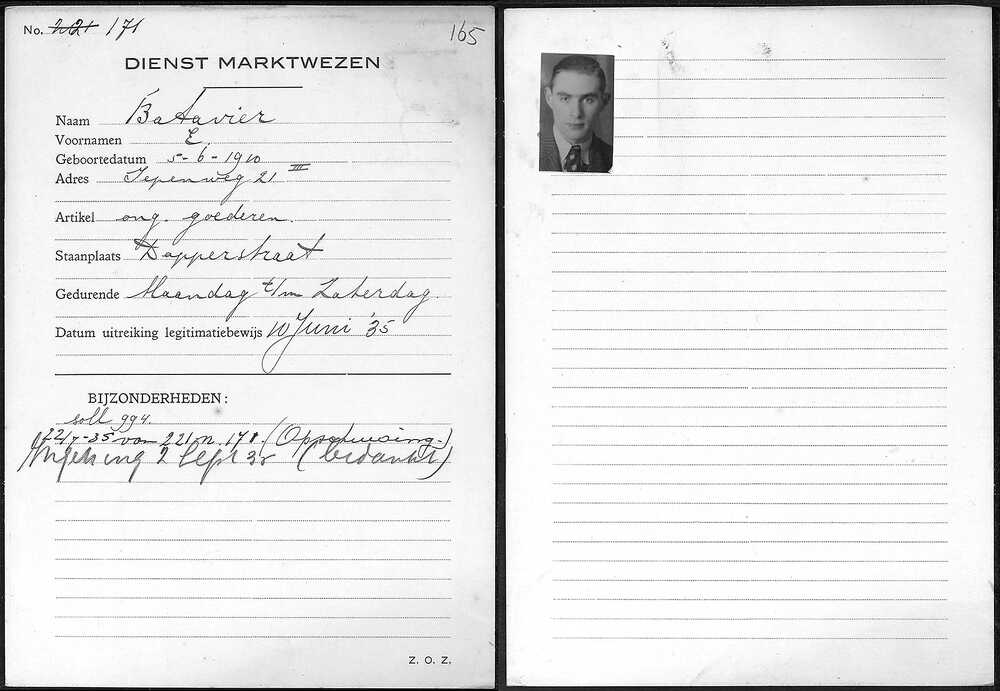 No. 221 171
165
DIENST MARKTWEZEN
Naam Batavier
Voornamen E.
Geboortedatum 5-6-1910
Adres Iepenweg 21 III
Artikel ong. goederen.
Staanplaats Dapperstraat
Gedurende Maandag t/m Zaterdag.
Datum uitreiking legitimatiebewijs 10 Juni '35
BIJZONDERHEDEN:
soll 994.
22/7-35 van 221 n. 171. (Opschuiving.)
Ingeking 2 Sept 35 (bedankt)
Z. O. Z.